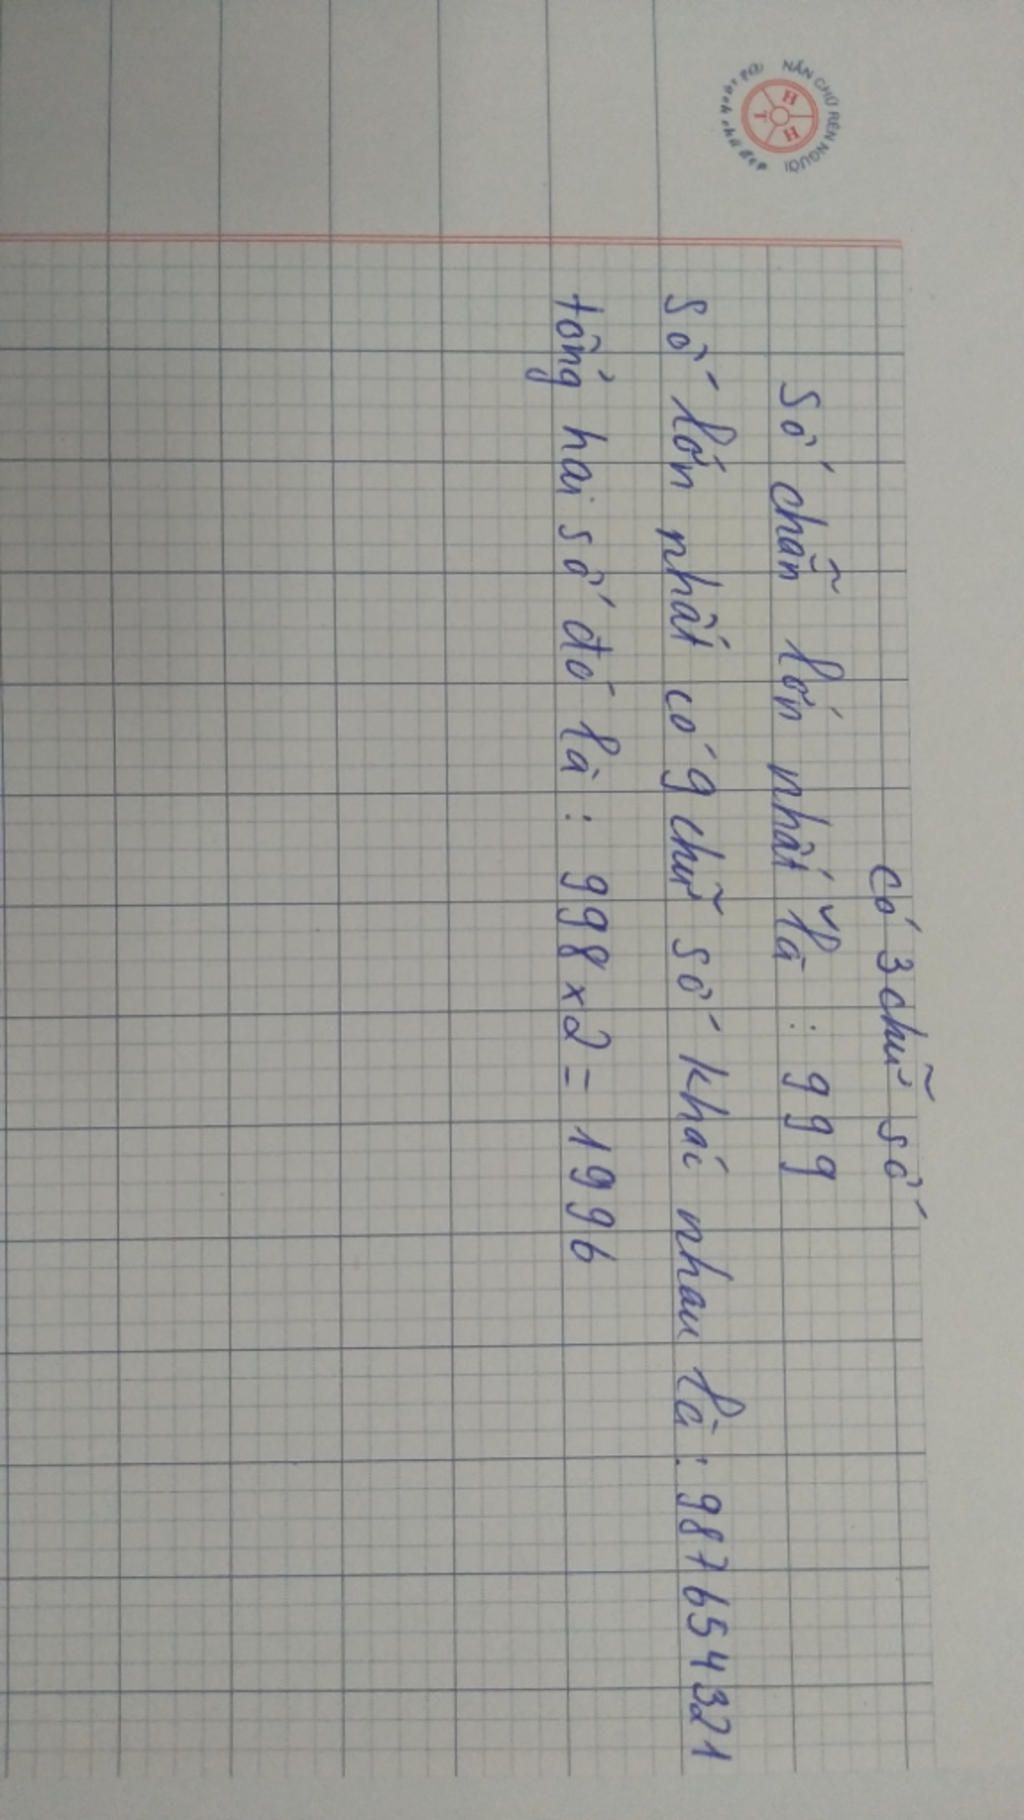 NẮN CHỮ RÈN NGƯỜI
H
H
T
có 3 chữ số
Số chẵn lớn nhất là : 999
Số lớn nhất có 9 chữ số khác nhau là : 987654321
tổng hai số đó là : 998 x 2 = 1996